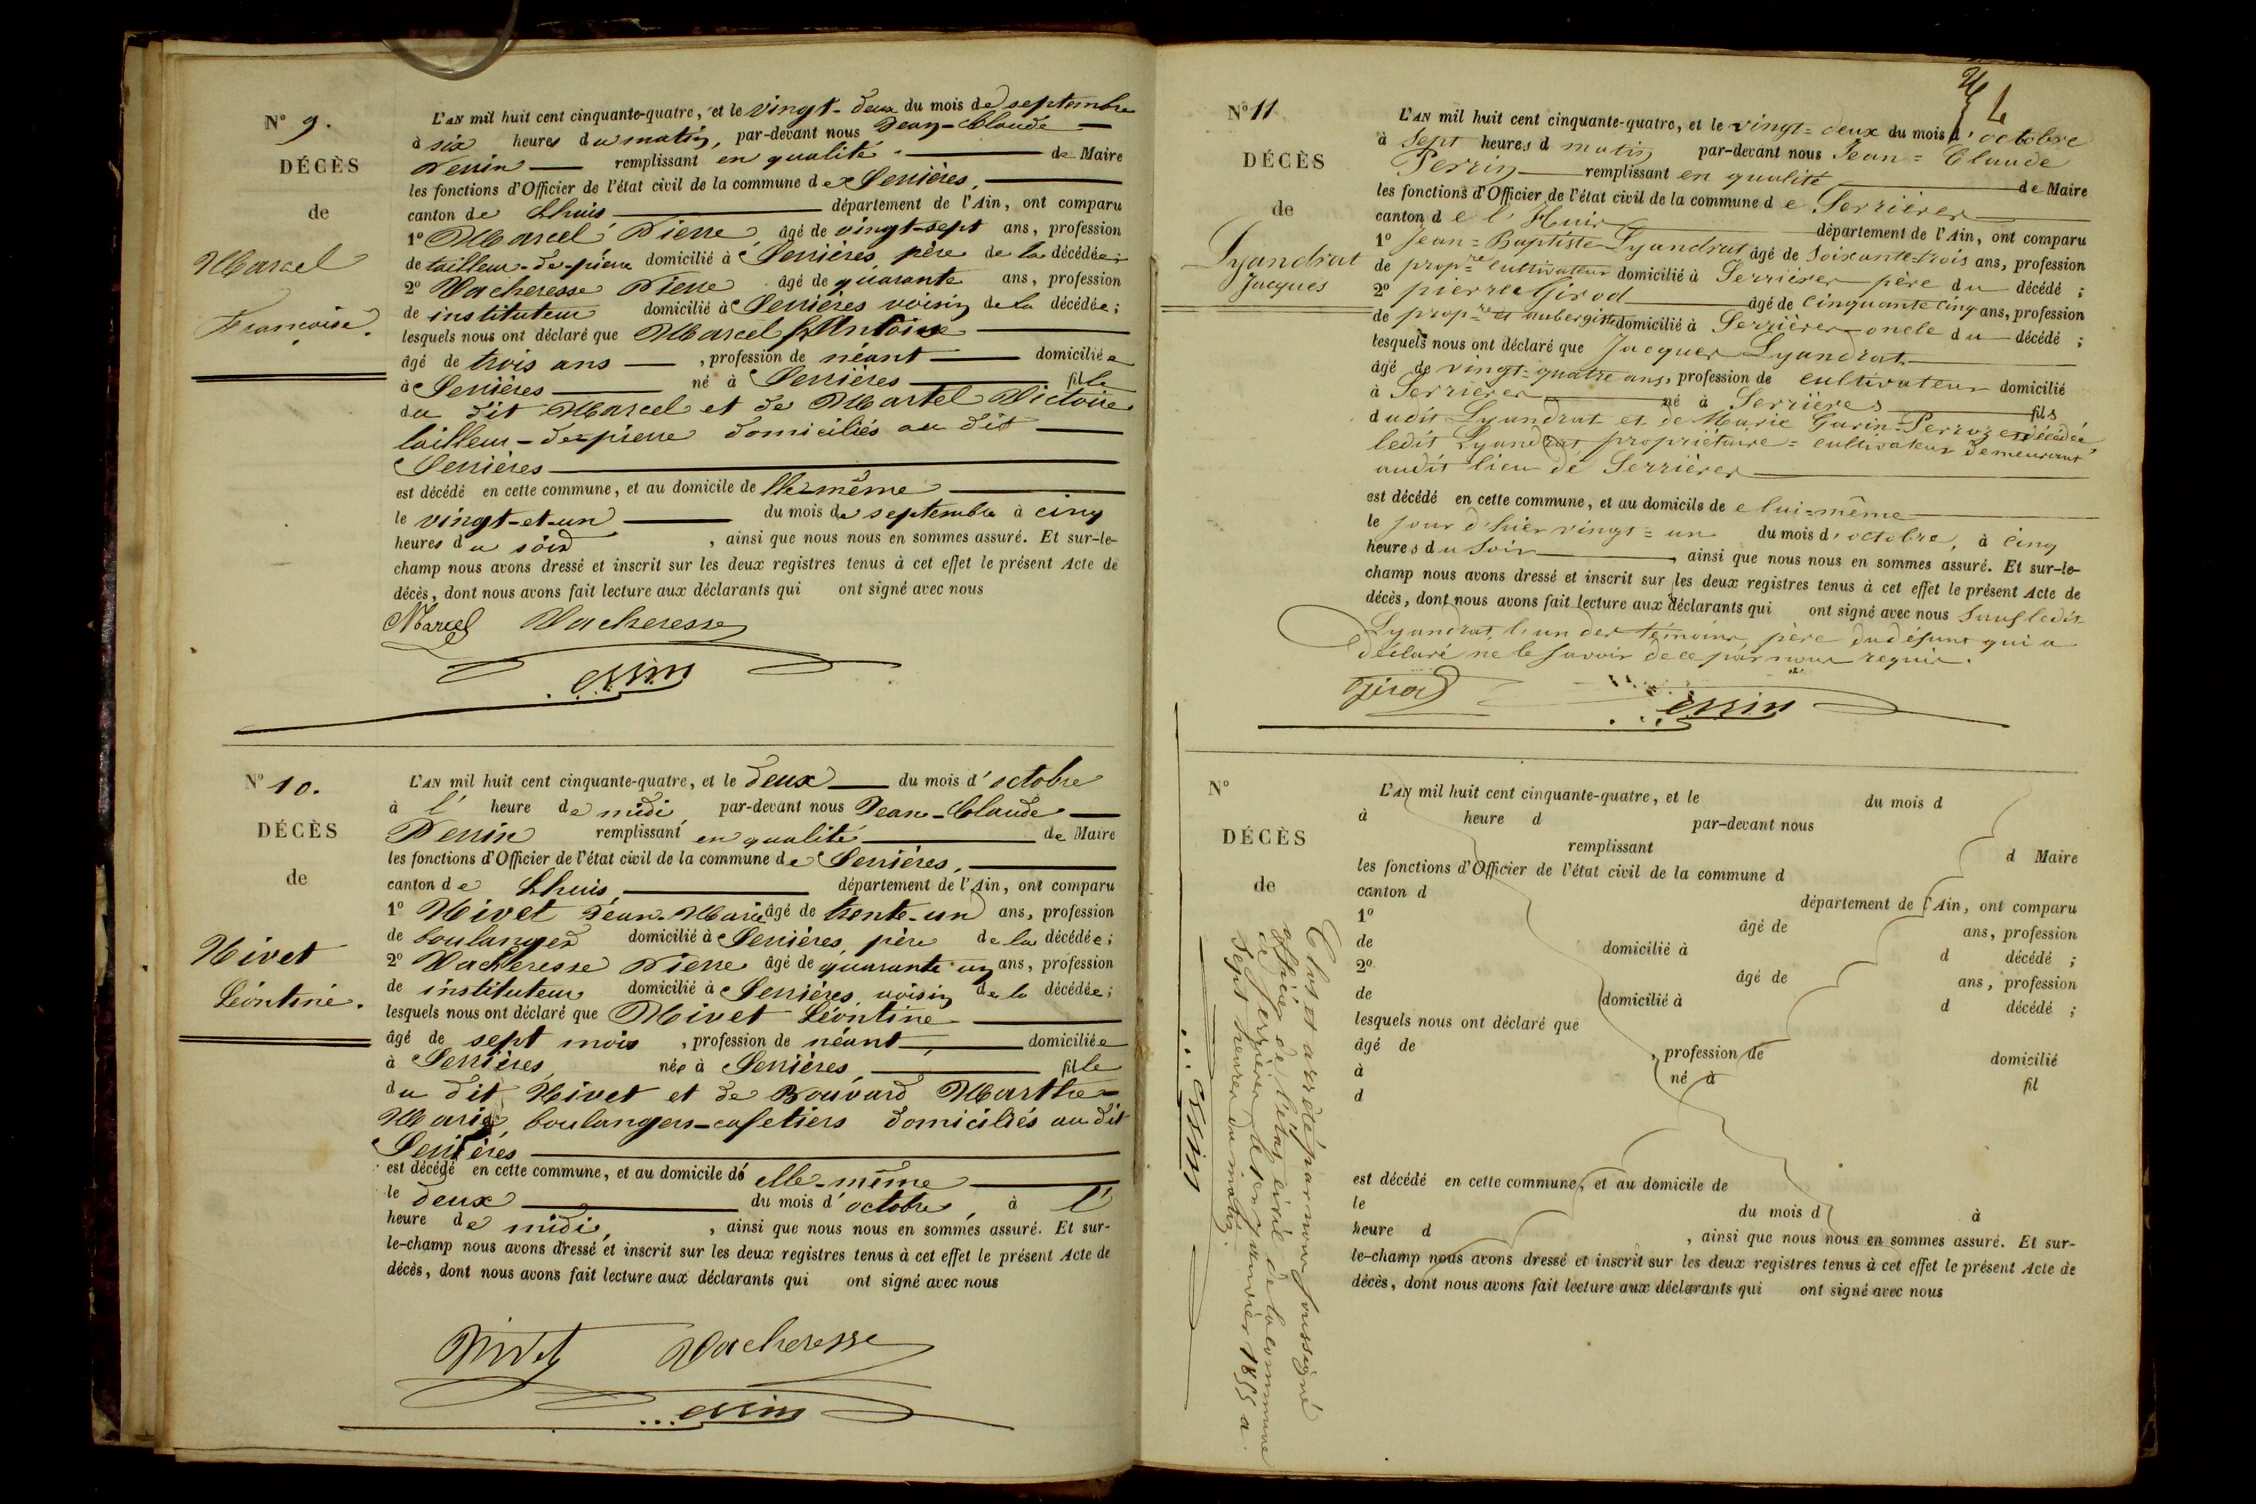 N° 9.
DÉCÈS
de
Marcel
Françoise.
L'AN mil huit cent cinquante-quatre, et le vingt-deux du mois de septembre
à six heures du matin, par-devant nous Jean-Claude
Perrin remplissant en qualité de Maire
les fonctions d'Officier de l'état civil de la commune de Serrières,
canton de Lhuis département de l'Ain, ont comparu
1° Marcel Pierre âgé de vingt-sept ans, profession
de tailleur-de-pierre domicilié à Serrières, père de la décédée;
2° Vacheresse Pierre âgé de quarante ans, profession
de instituteur domicilié à Serrières voisin de la décédée;
lesquels nous ont déclaré que Marcel
âgé de trois ans , profession de néant domiciliée
à Serrières né à Serrières fille
du dit Marcel et de Martel Victoire
tailleur-de-pierre domiciliés au dit
Serrières
est décédé en cette commune, et au domicile de lle-même
le vingt-et-un du mois de septembre à cinq
heures du soir , ainsi que nous nous en sommes assuré. Et sur-le-
champ nous avons dressé et inscrit sur les deux registres tenus à cet effet le présent Acte de
décès, dont nous avons fait lecture aux déclarants qui ont signé avec nous
Marcel Vacheresse
Perrin
N° 10.
DÉCÈS
de
Nivet
Léontine.
L'AN mil huit cent cinquante-quatre, et le deux du mois d'octobre
à l' heure de midi par-devant nous Jean-Claude
Perrin remplissant en qualité de Maire
les fonctions d'Officier de l'état civil de la commune de Serrières,
canton de Lhuis, département de l'Ain, ont comparu
1° Nivet Jean-Marie âgé de trente-un ans, profession
de boulanger domicilié à Serrières, père de la décédée;
2° Vacheresse Pierre âgé de quarante-un ans, profession
de instituteur domicilié à Serrières, voisin de la décédée;
lesquels nous ont déclaré que Nivet Léontine
âgé de sept mois , profession de néant, domiciliée
à Serrières, née à Serrières, fille
du dit Nivet et de Bouvard Marthe-
Marie, boulangers-cafetiers domiciliés au dit
Serrières
est décédé en cette commune, et au domicile de elle-même
le deux du mois d'octobre, à l'
heure de midi, , ainsi que nous nous en sommes assuré. Et sur-
le-champ nous avons dressé et inscrit sur les deux registres tenus à cet effet le présent Acte de
décès, dont nous avons fait lecture aux déclarants qui ont signé avec nous
Nivet Vacheresse
Perrin
N° 11
DÉCÈS
de
Lyandrat
Jacques
L'AN mil huit cent cinquante-quatre, et le vingt=deux du mois d'octobre
à sept heures d matin par-devant nous Jean=Claude
Perrin remplissant en qualité de Maire
les fonctions d'Officier de l'état civil de la commune de Serrières
canton de l'Huis département de l'Ain, ont comparu
1° Jean=Baptiste Lyandrat âgé de soixante-trois ans, profession
de prop.re cultivateur domicilié à Serrières père du décédé;
2° pierre Girod âgé de cinquante cinq ans, profession
de prop.re et aubergiste domicilié à Serrières oncle du décédé;
lesquels nous ont déclaré que Jacques Lyandrat
âgé de vingt=quatre ans, profession de cultivateur domicilié
à Serrières né à Serrières fils
dudit Lyandrat et de Marie Garin=Perroz décédée
ledit Lyandrat propriétaire=cultivateur demeurant
audit lieu de Serrières
est décédé en cette commune, et au domicile de e lui=même
le jour d'hier vingt=un du mois d'octobre, à cinq
heures du soir , ainsi que nous nous en sommes assuré. Et sur-le-
champ nous avons dressé et inscrit sur les deux registres tenus à cet effet le présent Acte de
décès, dont nous avons fait lecture aux déclarants qui ont signé avec nous sauf ledit
Lyandrat, l'un des témoins, père du défunt qui a
déclaré ne le savoir de ce par nous requis.
Girod Perrin
N°
DÉCÈS
de
L'AN mil huit cent cinquante-quatre, et le du mois d
à heure d par-devant nous
remplissant d Maire
les fonctions d'Officier de l'état civil de la commune d
canton d département de l'Ain, ont comparu
1° âgé de ans, profession
de domicilié à d décédé ;
2° âgé de ans, profession
de domicilié à d décédé ;
lesquels nous ont déclaré que
âgé de , profession de domicilié
à né à fil
d
est décédé en cette commune, et au domicile de
le du mois d à
heure d , ainsi que nous nous en sommes assuré. Et sur-
le-champ nous avons dressé et inscrit sur les deux registres tenus à cet effet le présent Acte de
décès, dont nous avons fait lecture aux déclarants qui ont signé avec nous
Clos et arrêté par nous soussigné
officier de l'état civil de la commune
de Serrières le janvier 1855 à
sept heures du matin.
Perrin